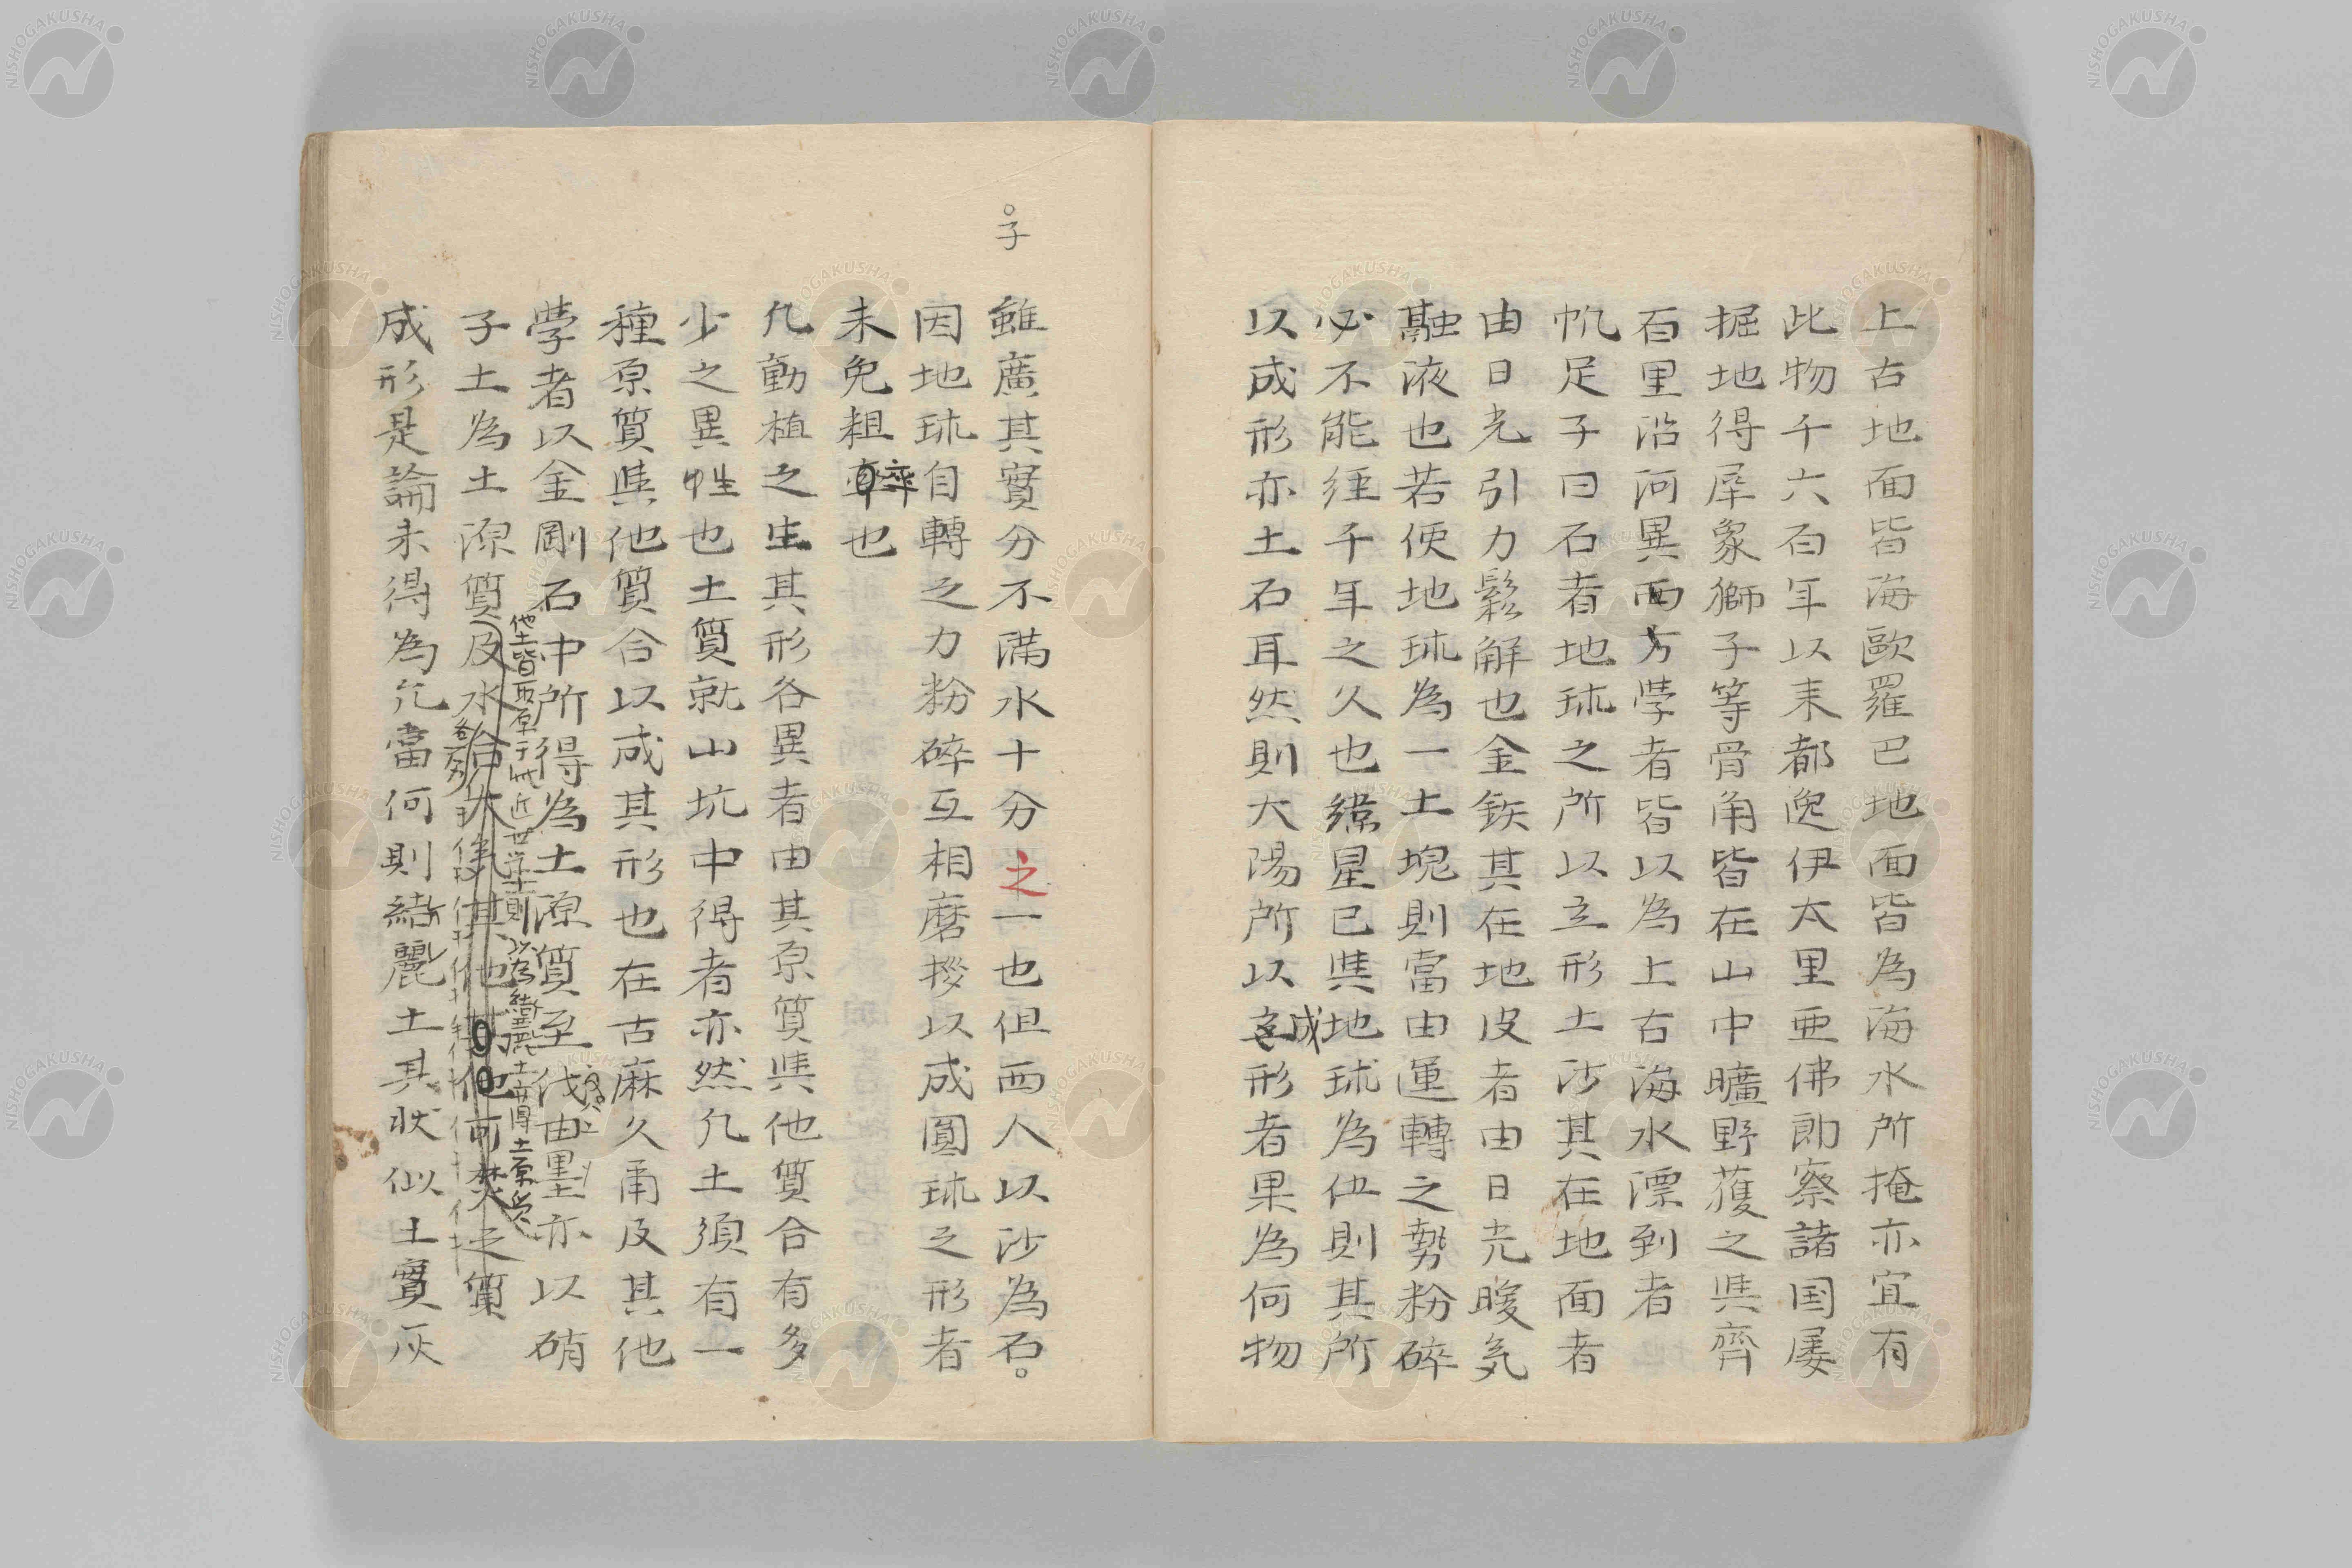 上古地面皆海歐羅巴地面皆為海水所掩亦宜有
此物千六百年以来都逸伊太里亜佛郎察諸国屡
掘地得犀象獅子等骨角皆在山中曠野獲之與齊
百里沿河異西方学者皆以為上古海水漂到者
帆足子曰石者地球之所以立形土沙其在地面者
由日光引力鬆解也金鉄其在地皮者由日光暖気
融液也若使地球為一土塊則當由運轉之勢粉碎
必不能経千年之久也緯星已與地球為伍則其所
以成形亦土石耳然則大陽所以成形者果為何物
子
雖廣其實分不満水十分之一也但西人以沙為石。
因地球自轉之力粉碎互相磨拶以成圓球之形者
未免粗率也
凡動植之生其形各異者由其原質與他質合有多
少之異性也土質就山坑中得者亦然凡土須有一
種原質與他質合以成其形也在古麻久甭及其他
学者以金剛石中所得為土源質至伐由墨亦以硝
他土皆原于此近世学士則以為緒麗土斎得土原質
子土為土源質及水合大気其他可焚之質
成形是論未得為允當何則緒麗土其状似土實灰